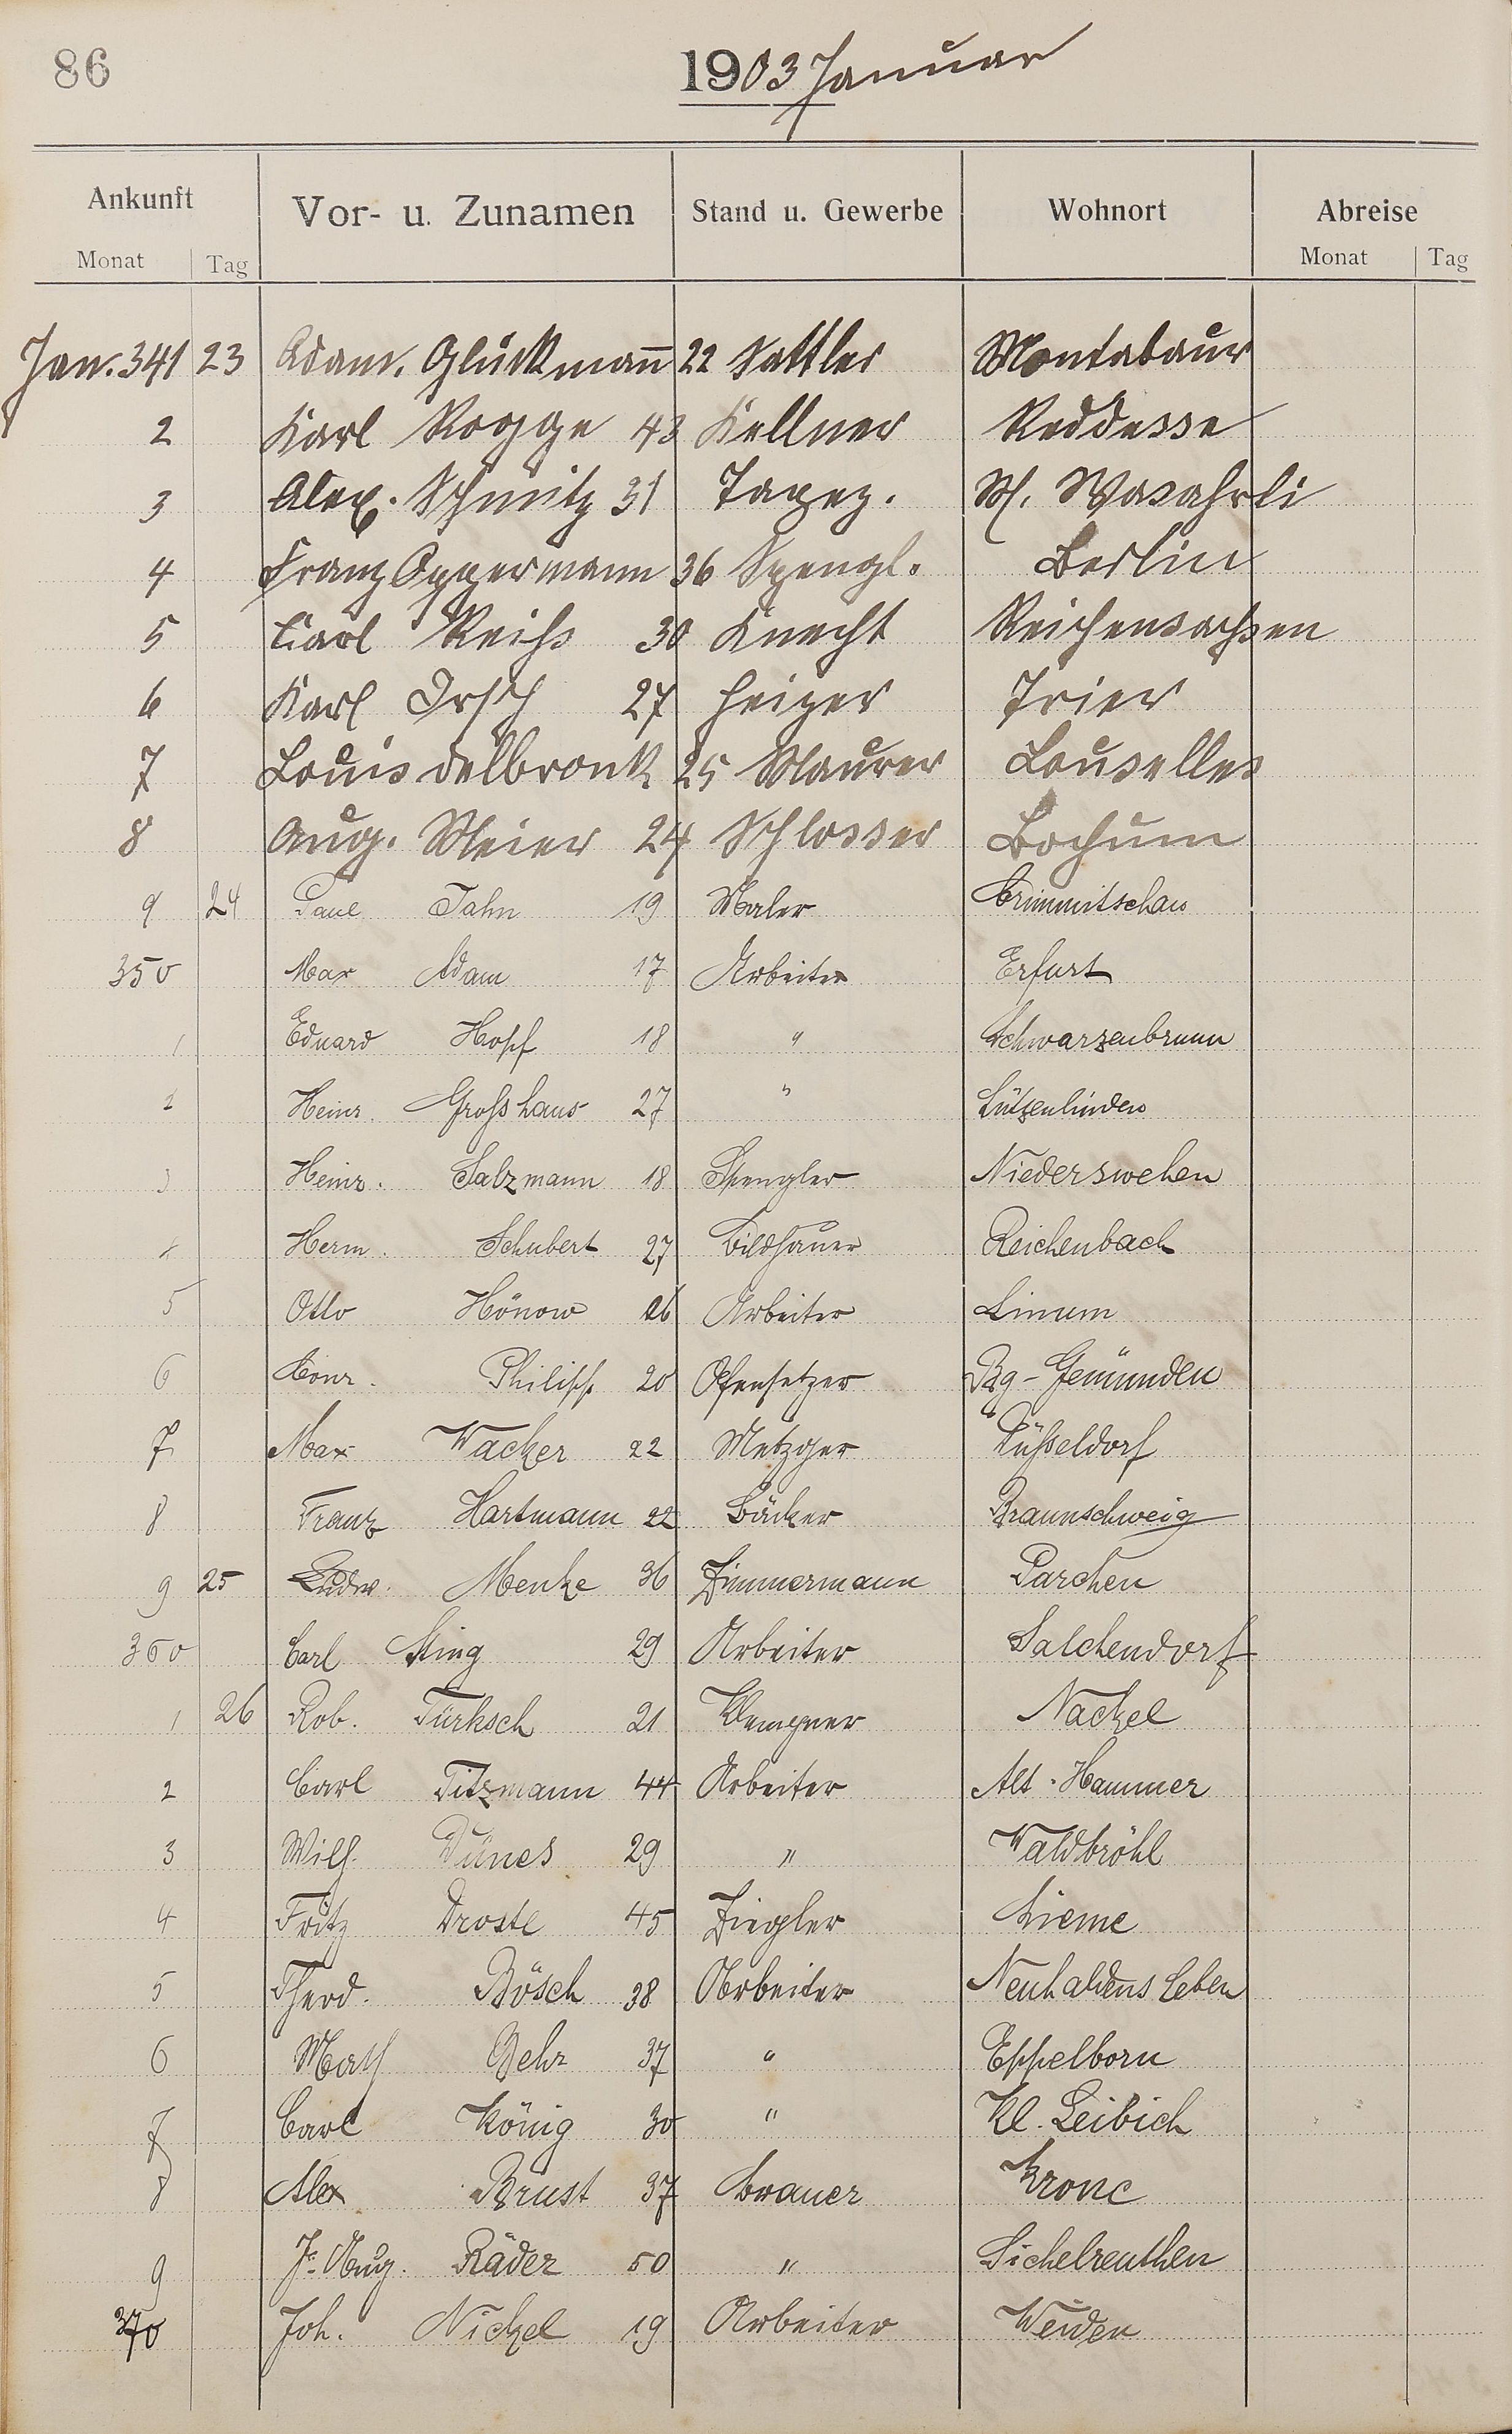 86
1903 Januar
Ankunft Vor- u. Zunamen Stand u. Gewerbe Wohnort Abreise
Monat Tag Monat Tag
Jan. 341 23 Adam. Glückmann 22 Sattler Montabaur
2 Karl Rogge 43 Kellner Reddesse
3 Alex. Schmitz 31 Tapez.
4 Franz Oppermann 36 Spengl. Berlin
5 Carl Reihs 30 Knecht Reichensachsen
6 Karl Orsch 27 Heizer Trier
7 Louis Delbrouk 25 Maurer Louselles
8 Aug. Meier 24 Schlosser Bochum
9 24 Paul Jahn 19 Maler Crimmitschau
350 Max Adam 17 Arbeiter Erfurt
1 Eduard Hopf 18 " Schwarzenbrunn
2 Heinr. Großhaus 27 " Lützenlinden
3 Heinr. Salzmann 18 Spengler Niederzwehen
4 Herm. Schubert 27 Bildhauer Reichenbach
5 Otto Hönow 26 Arbeiter Linum
6 Conr. Philipp 20 Ofensetzer Bg-Gemünden
7 Max Wacker 22 Metzger Düsseldorf
8 Franz Hartmann 22 Bäcker Braunschweig
9 25 Ludw. Menke 36 Zimmermann Parchen
360 Carl Sting 29 Arbeiter Salchendorf
1 26 Rob. Türksch 21 Klempner Nackel
2 Carl Titzmann 44 Arbeiter Alt-Hammer
3 Wilh. Dünes 29 " Waldbröhl
4 Fritz Droste 45 Ziegler Lieme
5 Therd. Bösch 38 Arbeiter Neuhaldensleben
6 Math Behr 37 " Eppelborn
7 Carl König 30 " Kl. Leibich
8 Alex Brust 37 Brauer Krone
9 J. Aug. Räder 50 " Sichelreuthen
370 Joh. Nickel 19 Arbeiter Weiden